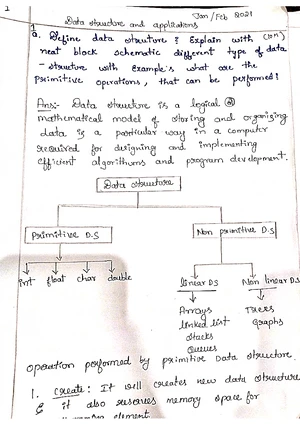 1
Jan / Feb 2021
Data structure and applications
1
a. Define data structure & Explain with (10M)
neat block schematic different type of data
- structure with Example's what are the
primitive operations, that can be performed?
Ans:- Data structure is a logical or
mathematical model of storing and organizing
data is a particular way in a computer
required for designing and implementing
efficient algorithms and program development.
Data structure
Primitive D.S
Non primitive D.S
int float char double
linear DS
Non linear DS
Arrays
linked list
stacks
Queues
Trees
Graphs
operation performed by primitive Data structure.
1. create: It will creates new data structure
& it also reserves memory space for
element